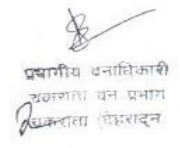 प्रभागीय वनाधिकारी
चकराता वन प्रभाग
चकराता (देहरादून